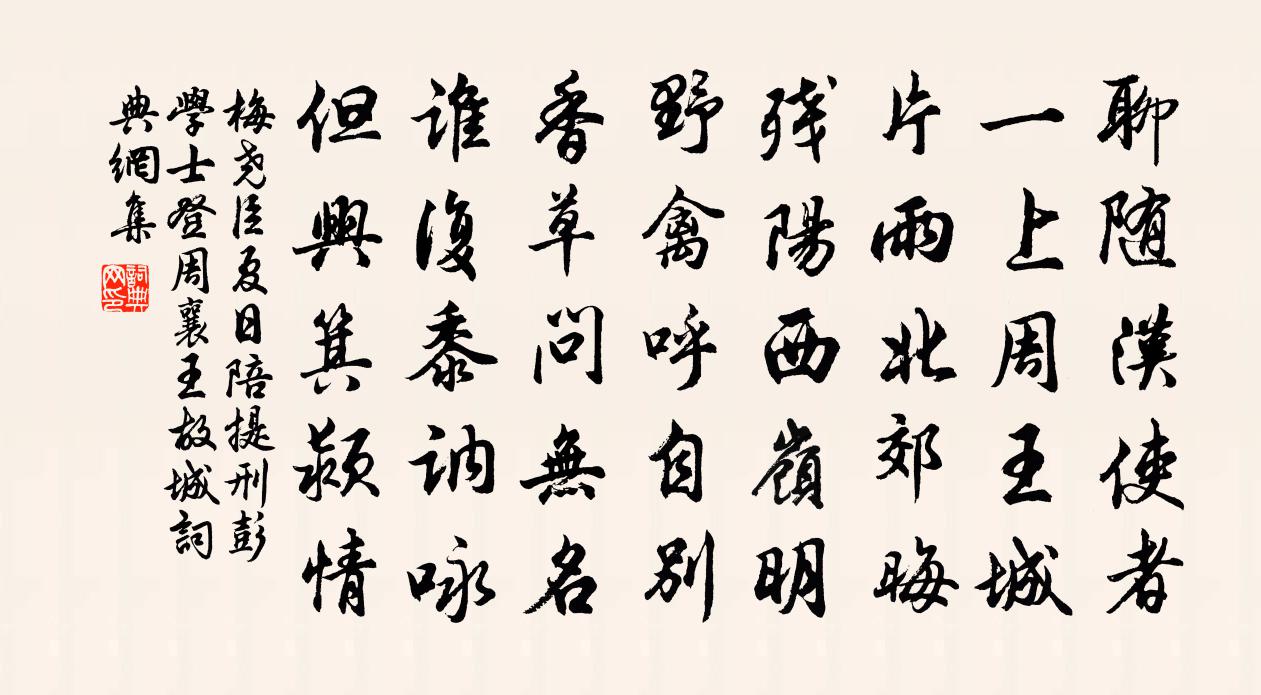 聊随漢使者
一上周王城
片雨北郊晦
残陽西嶺明
野禽呼自别
香草問無名
誰復黍訥咏
但興箕潁情
梅尧臣夏日陪提刑彭
學士登周襄王故城詞
典網集
詞典
网印